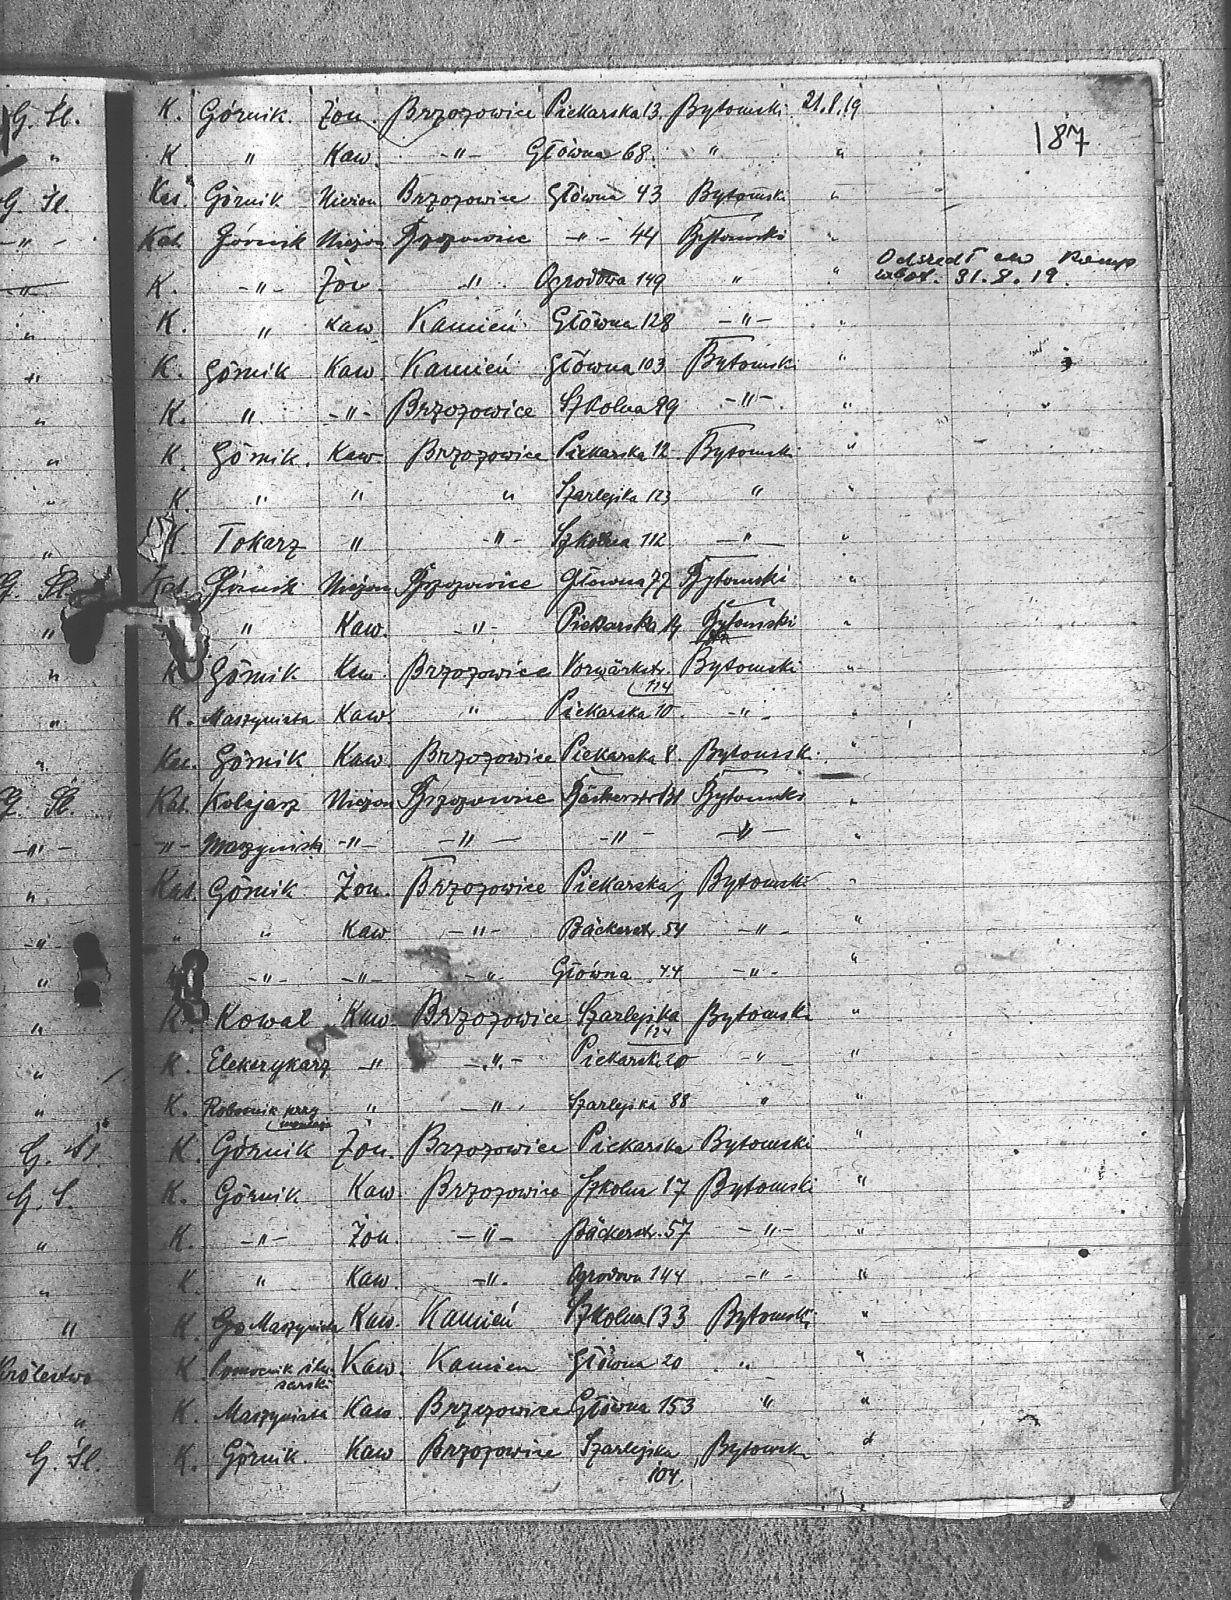 187
G. Śl. K. Górnik Żon. Brzozowice Piekarska 13. Bytomski 21.8.19
" K. " Kaw. -"- Główna 68. " "
G. Śl. Kat. Górnik Nieżon Brzozowice Główna 43 Bytomski "
-"- Kat. Górnik Nieżon Brzozowice -"- 44 Bytomski "
-"- K. -"- Żon. -"- Ogrodowa 149 " " Odszedł
31.8.19.
" K. " Kaw. Kamień Główna 128 -"- "
" K. Górnik Kaw. Kamień Główna 103 Bytomski "
" K. " -"- Brzozowice Szkolna 99 -"- "
" K. Górnik. Kaw. Brzozowice Piekarska 12 Bytomski "
K. " " " Szarlejska 123 " "
" K. Tokarz " -"- Szkolna 112 -"- "
G. Śl. Kat. Górnik Nieżon Brzozowice Główna 77 Bytomski "
" " Kaw. -"- Piekarska 14 Bytomski "
" K. Górnik Kaw. Brzozowice Vorwärkstr. Bytomski "
124
" K. Maszynista Kaw. " Piekarska 10. -"- "
" Kat. Górnik Kaw. Brzozowice Piekarska 8. Bytomsk. "
G. Śl. Kat. Kolejarz Nieżon Brzozowice Bäckerstr. Bytomski "
-"- -"- Maszynista -"- -"- -"- -"- "
" Kat. Górnik Żon. Brzozowice Piekarska 1 Bytomski "
-"- " " Kaw -"- Bäckerstr. 54 -"- "
" -"- -"- -"- Główna 44 -"- "
" K. Kowal Kaw. Brzozowice Szarlejska Bytomski "
124
" K. Elekerykarz -"- -"- Piekarsk. 20 -"- "
" K. Robotnik przy " -"- Szarlejska 88 " "
montaże
G. Śl. K. Górnik Żon. Brzozowice Piekarska Bytomski "
G. Ś. K. Górnik Kaw Brzozowice Szkolna 17 Bytomski "
" K. -"- Żon. -"- Bäckerstr. 57 -"- "
" K. " Kaw. -"- Ogrodowa 144 -"- "
" K. Maszynista Kaw. Kamień Szkolna 133 Bytomski "
Królestwo K Pomocnik ślu- Kaw. Kamien Główna 20 " "
sarski
" K. Maszynista Kaw. Brzezowice Główna 153 " "
G. Śl. K. Górnik. Kaw Brzozowice Szarlejska Bytomsk "
104.